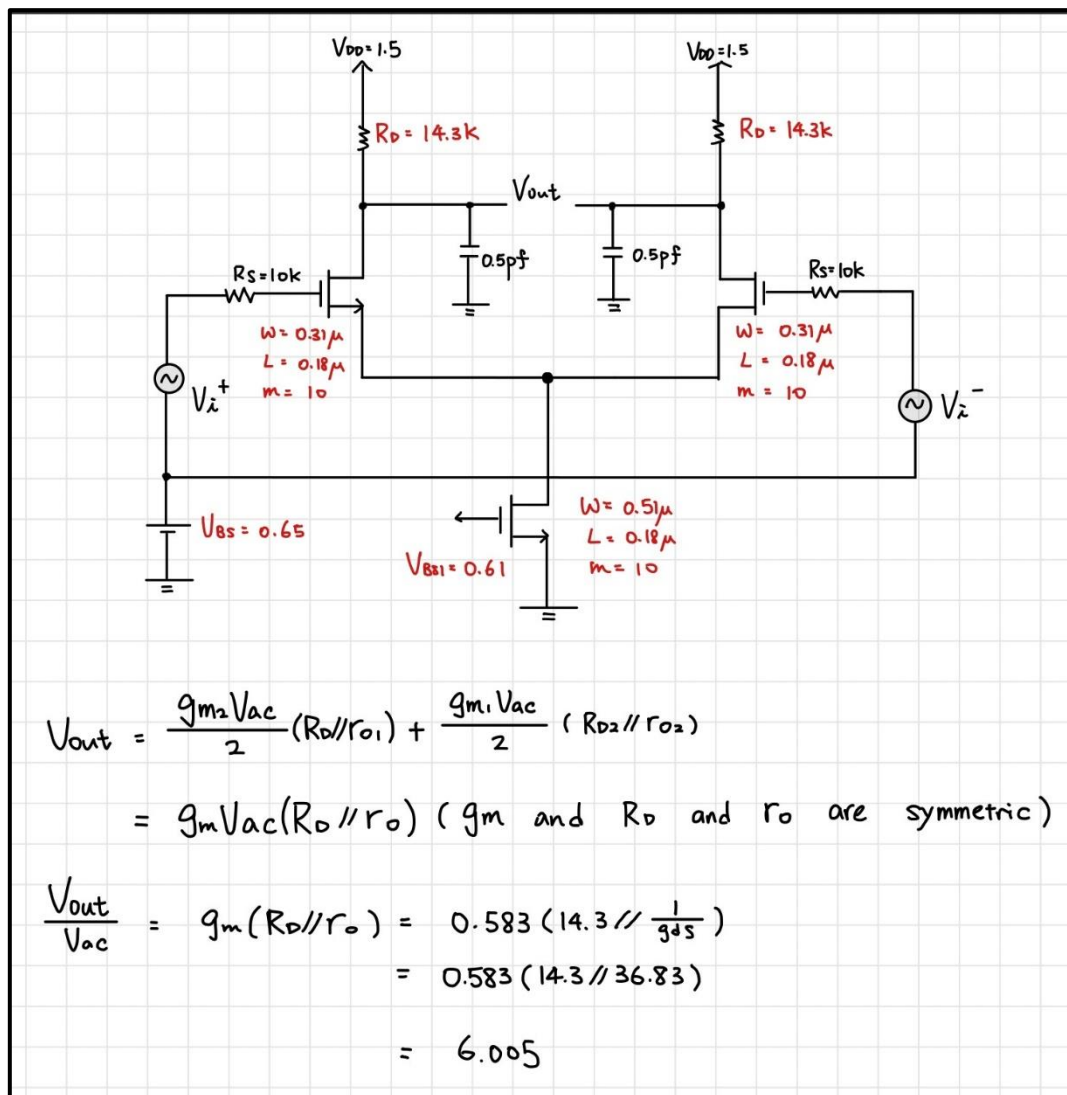 VDD=1.5 VDD=1.5
RD = 14.3k RD = 14.3k
Vout
0.5pf 0.5pf
Rs=10k Rs=10k
W= 0.31μ W= 0.31μ
L= 0.18μ L= 0.18μ
m= 10 m= 10
Vi+ Vi-
VBS = 0.65
W= 0.51μ
L= 0.18μ
m= 10
VBS1 = 0.61
Vout = gm2Vac/2 (RD//ro1) + gm1Vac/2 (RD2//ro2)
= gmVac(RD//ro) (gm and RD and ro are symmetric)
Vout/Vac = gm(RD//ro) = 0.583 (14.3// 1/gds)
= 0.583 (14.3//36.83)
= 6.005